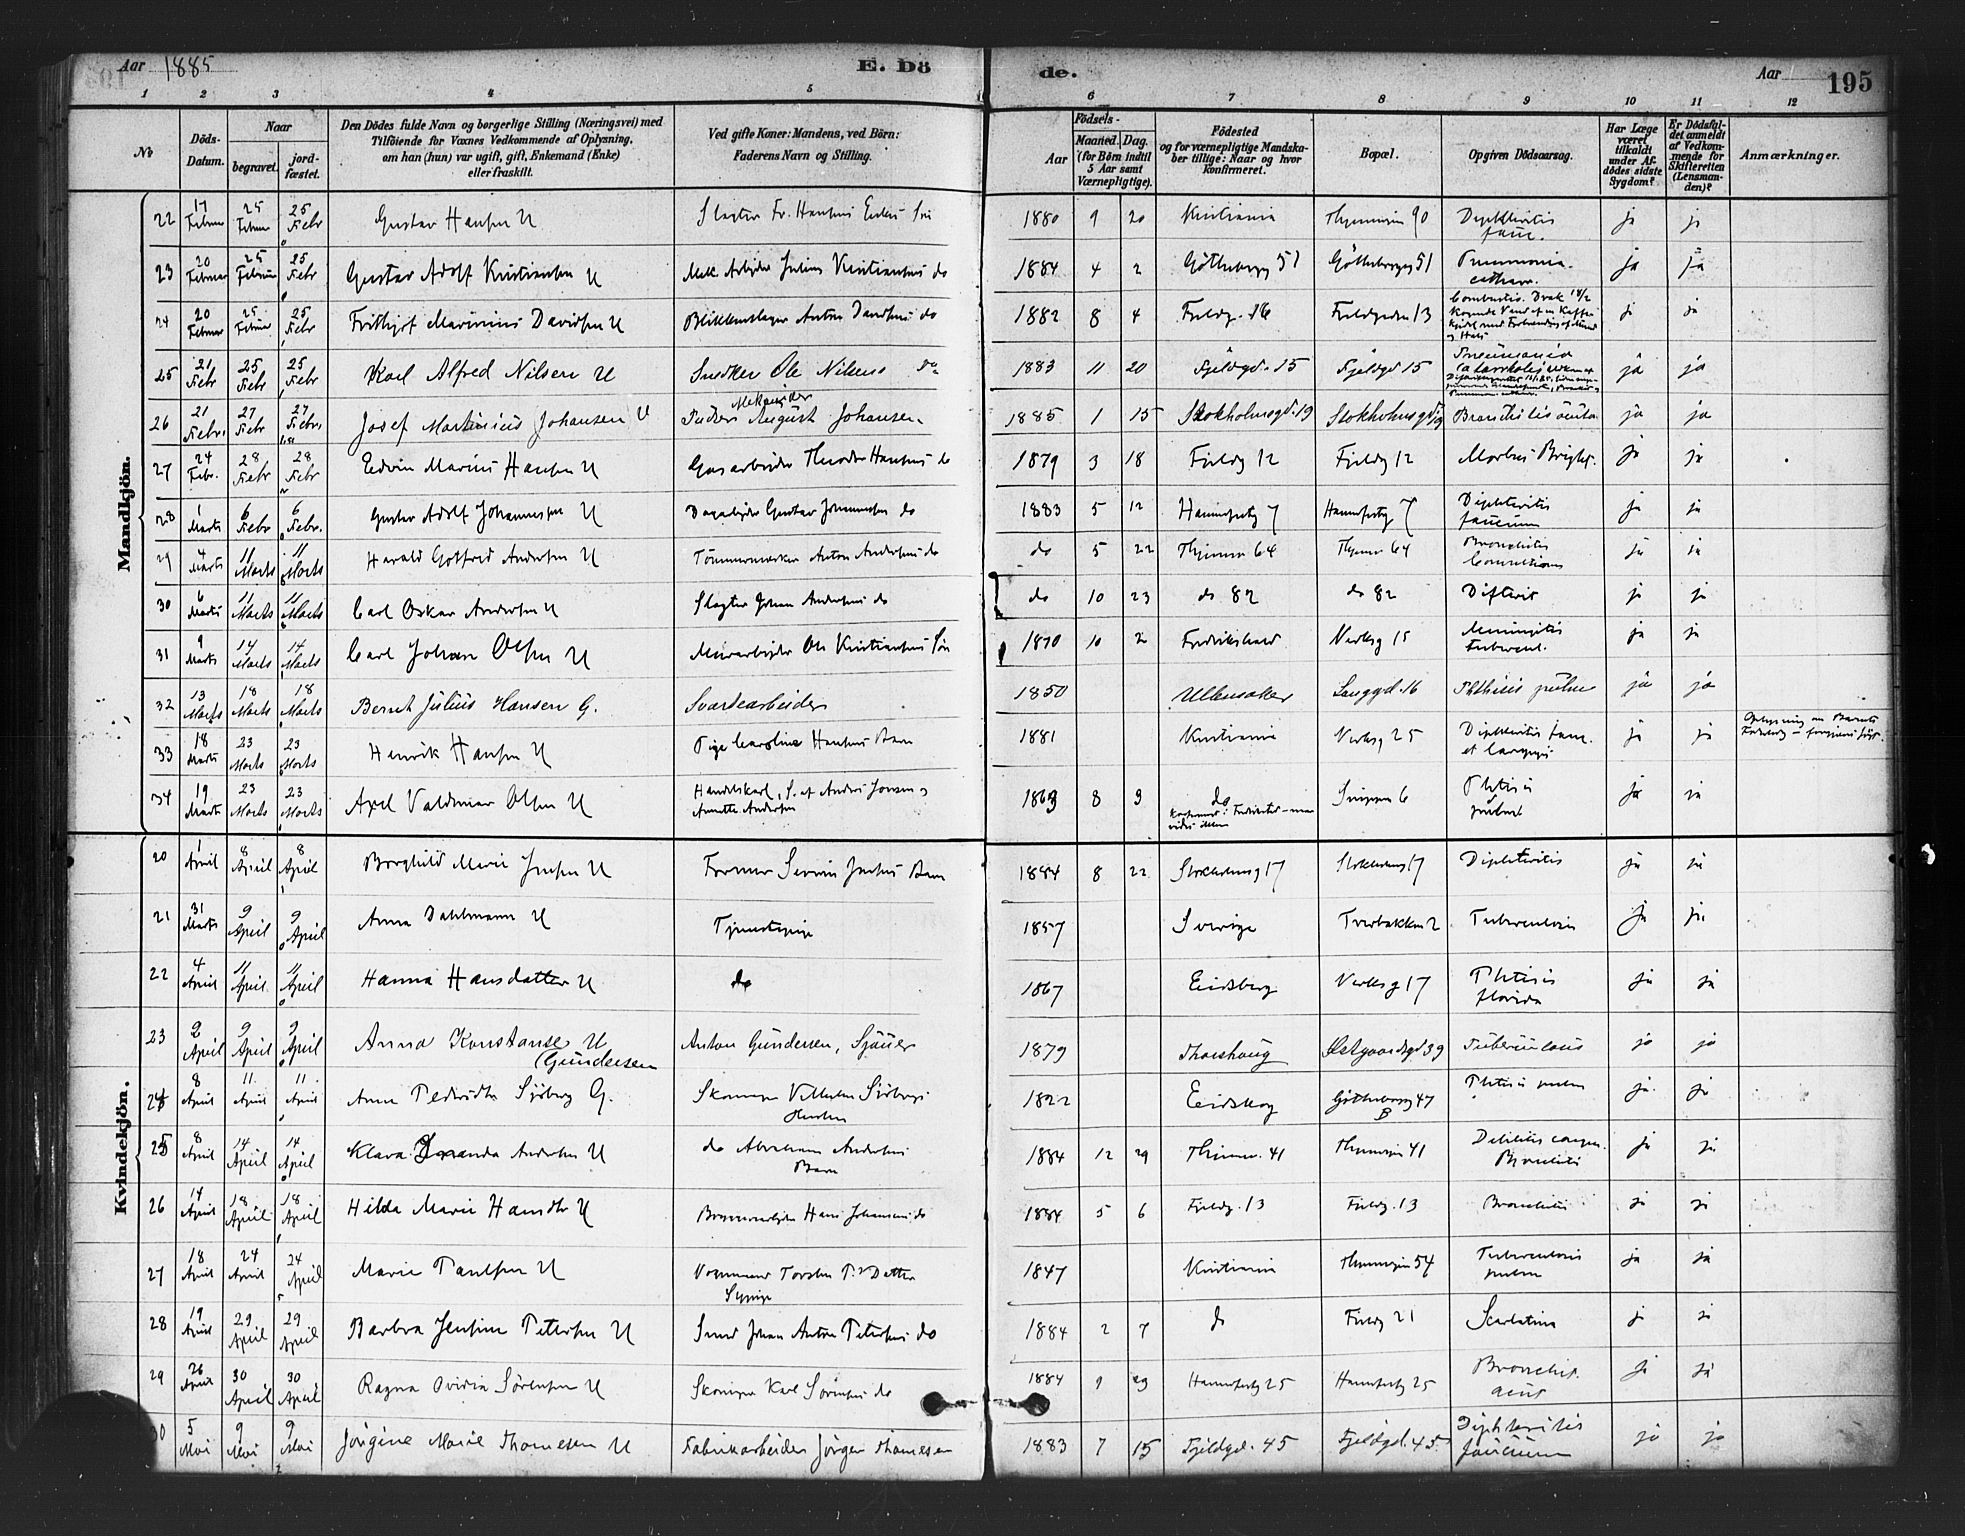 Aar 1885 E. Dö de. Aar 1 195
1 2 3 4 5 6 7 8 9 10 11 12
No
Döds-Datum.
Naar
begravet.
jord-fæstet.
Den Dödes fulde Navn og borgerlige Stilling (Næringsvei) med
Tilföiende for Voxnes Vedkommende af Oplysning,
om han (hun) var ugift, gift, Enkemand (Enke)
eller fraskilt.
Ved gifte Koner: Mandens, ved Börn:
Faderens Navn og Stilling.
Födsels-
Aar
Maaned. Dag.
(for Börn indtil
5 Aar samt
Værnepligtige).
Födested
og for værnepligtige Mandska-
ber tillige: Naar og hvor
konfirmeret.
Bopæl.
Opgiven Dödsaarsag.
Har Læge
været
tilkaldt
under Af-
dödes sidste
Sygdom?
Er Dödsfal-
det anmeldt
af Vedkom-
mende for
Skifteretten
(Lensman-
den)?
Anmærkninger.
Mandkjön.
22 17 Februar 25 Februar 25 Febr Gustav Hansen U Slagter Fr. Hansens 1880 9 20 Kristiania 90 Diphteritis fauc. ja ja
23 20 Februar 25 Februar 25 Febr Gustav Adolf Kristiansen U Mek Arbejder Julius Kristiansens do 1884 4 2 Götheborgg 51 Götheborgg 51 Pneumonia ja ja
24 20 Februar 25 Februar 25 Febr Frithjof Marinius Davidsen U Blikkenslager Anton Davidsens do 1882 8 4 Fjeldg. 16 Fjeldgaden 13 Combustio. Drak 14/2 kogende Vand af en Kaffe og Hals ja ja
25 21 Febr 25 Febr 25 Febr Karl Alfred Nilsen U Snedker Ole Nilsens do 1883 11 20 Fjeldgd. 15 Fjeldgd 15 Pneumonia ja ja
26 21 Febr. 27 Febr 27 Febr. Josef Martinius Johansen U August Johansen 1885 1 15 Stokholmsgd. 19 Stokholmsgd. 19 Bronkitis acuta ja ja
27 24 Febr. 28 Febr 28 Febr Edvin Marius Hansen U Gasarbeider Theodor Hansens do 1879 3 18 Fjeldg 12 Fjeldg 12 Morbus Bright. ja ja
28 1 Marts 6 Febr 6 Febr. Gustav Adolf Johannessen U Gustav Johannessen do 1883 5 12 Hammfestg 7 Hammfestg 7 Diphteritis faucium ja ja
29 4 Marts 11 Marts 11 Marts Harald Gotfred Andersen U Tömmermerker Anton Andersens do do 5 22 64 64 Bronchitis Convulsions ja ja
30 6 Marts 11 Marts 11 Marts Carl Oskar Andersen U Slagter Johan Andersens do do 10 23 do 82 do 82 Difterit ja ja
31 9 Marts 14 Marts 14 Marts Carl Johan Olsen U Murarbejder Ole Kristiansens Sön 1870 10 2 Fredrikshald Verksg 15 Meningitis Tubercul. ja ja
32 13 Marts 18 Marts 18 Marts Bernt Julius Hansen G. 1850 Ullensaker Langgd. 16 Phthisis pulm ja ja
33 18 Marts 23 Marts 23 Marts Henrik Hansen U Pige Caroline Hansens Barn 1881 Kristiania Verksg 25 Diphteritis fauc. et laryngis ja ja
34 19 Marts 23 Marts 23 Marts Axel Valdemar Olsen U Handelskarl, S. af Anders Jonsen og Annette Andersen 1863 8 9 do 6 Phtisis pulm. ja ja
Kvindekjön.
20 1 April 8 April 8 April Borghild Marie Jensen U Former Severin Jensens Barn 1884 8 22 Stokholmsg 17 Stokholmsg 17 Diphteritis ja ja
21 31 Marts 9 April 9 April Anna Dahlmann U Tjenestepige 1857 Sverige Tverbakken 2 Tuberculosis ja ja
22 4 April 11 April 11 April Hanna Hansdatter U do 1867 Eidsberg Verksg 17 Phtisis florida ja ja
23 2 April 9 April 9 April Anna Konstanse U (Gundersen Anton Gundersen, Sjöuer 1879 Thorshaug Østgaardsgd 39 Tuberculous ja ja
24 8 April 11 April 11 April Anne Pedersdtr Sjöberg G. Skomager Vilhelm Sjöbergs Hustru 1822 Eidskog Götheborgg 47 B Phtisis pulm ja ja
25 8 April 14 April 14 April Klara Andersen U do Abraham Andersens Barn 1884 12 29 41 41 Debilitas congen. Bronchitis ja ja
26 14 April 18 April 18 April Hilda Marie Hansdtr U Hans Johansens do 1884 5 6 Fjeldg. 13 Fjeldg. 13 Bronchitis ja ja
27 18 April 24 April 24 April Marie Paulsen U Torsten P.s Datter Sypige 1847 Kristiania 54 Tuberculosis pulm ja ja
28 19 April 29 April 29 April Barbra Jensine Petersen U Smed Johan Anton Petersens do 1884 2 7 do Fjeldg 21 Scarlatina ja ja
29 26 April 30 April 30 April Ragna Ovidia Sörensen U Skomager Karl Sörensens do 1884 9 29 Hammfestg 25 Hammfestg 25 Bronchit. acut ja ja
30 5 Mai 9 Mai 9 Mai Jörgine Marie Thomesen U Fabrikarbeider Jörgen Thomesen 1883 7 15 Fjeldgd. 45 Fjeldgd. 45 Diphteritis faucium ja ja